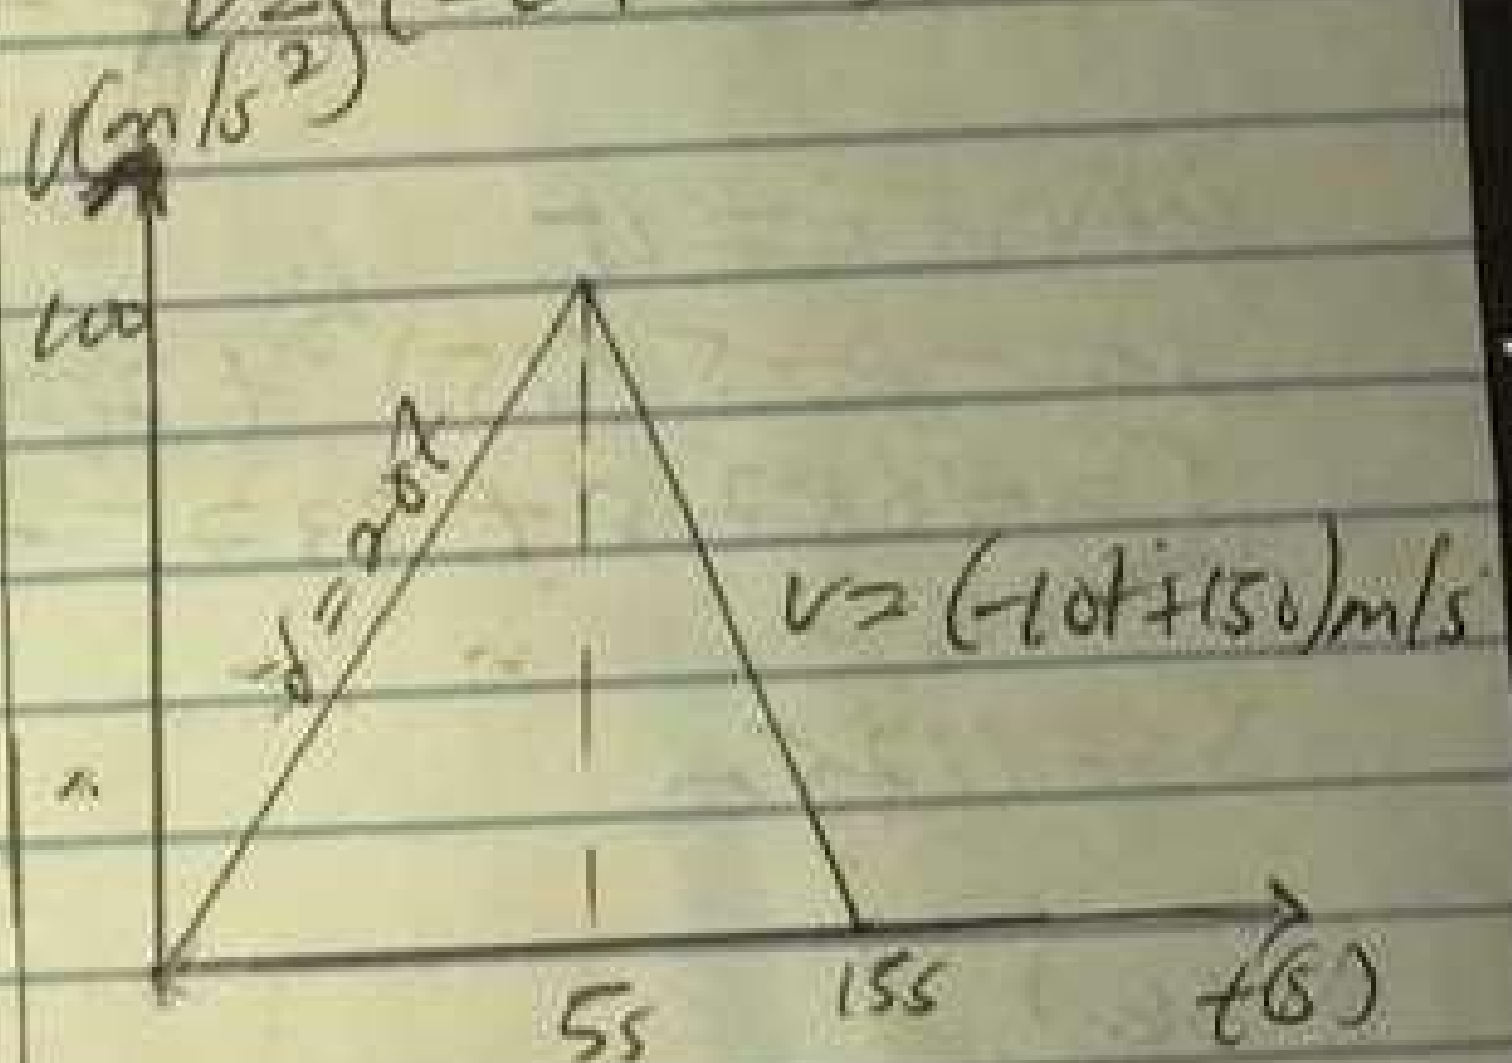 v(m/s²)
100
v = 20t
v = (-10t+150)m/s
5s
15s
t(s)